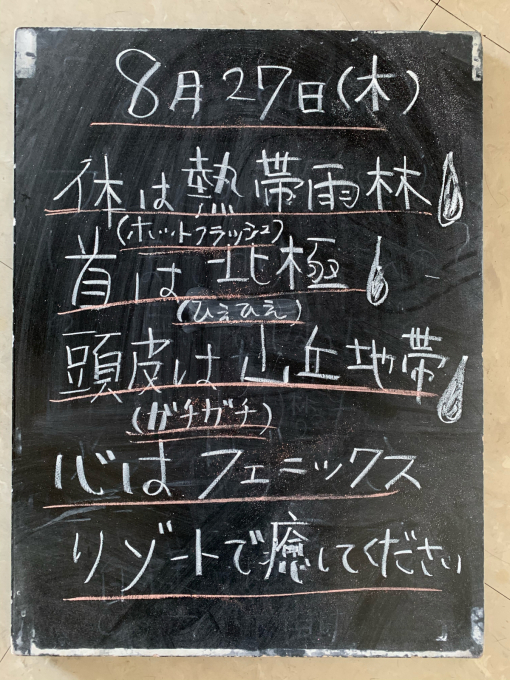 8月27日(木)
体は熱帯雨林
(ホットフラッシュ)
首は北極
(ひえひえ)
頭皮は山丘地帯
(ガチガチ)
心はフェニックス
リゾートで癒してください